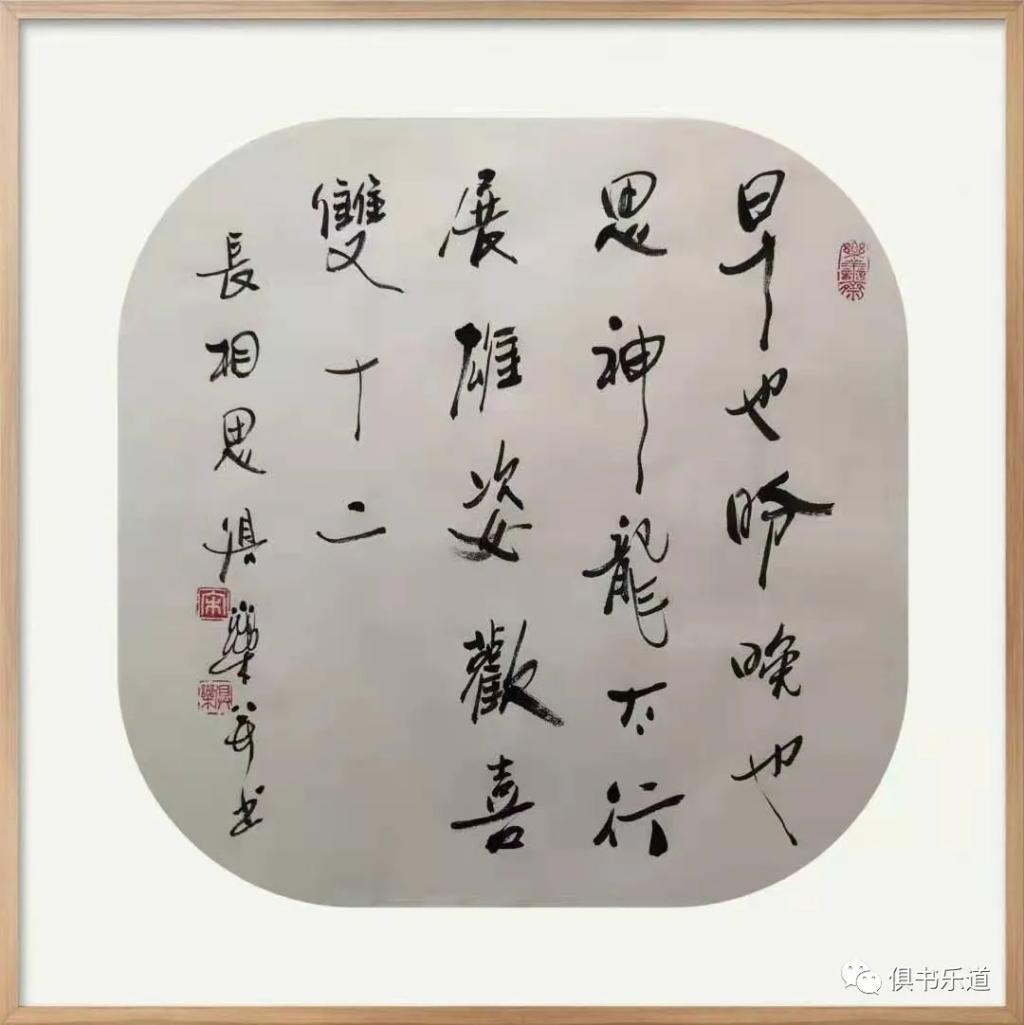 早也盼晚也
思神龍太行
展雄姿歡喜
雙十二
長相思俱樂并书
俱书乐道